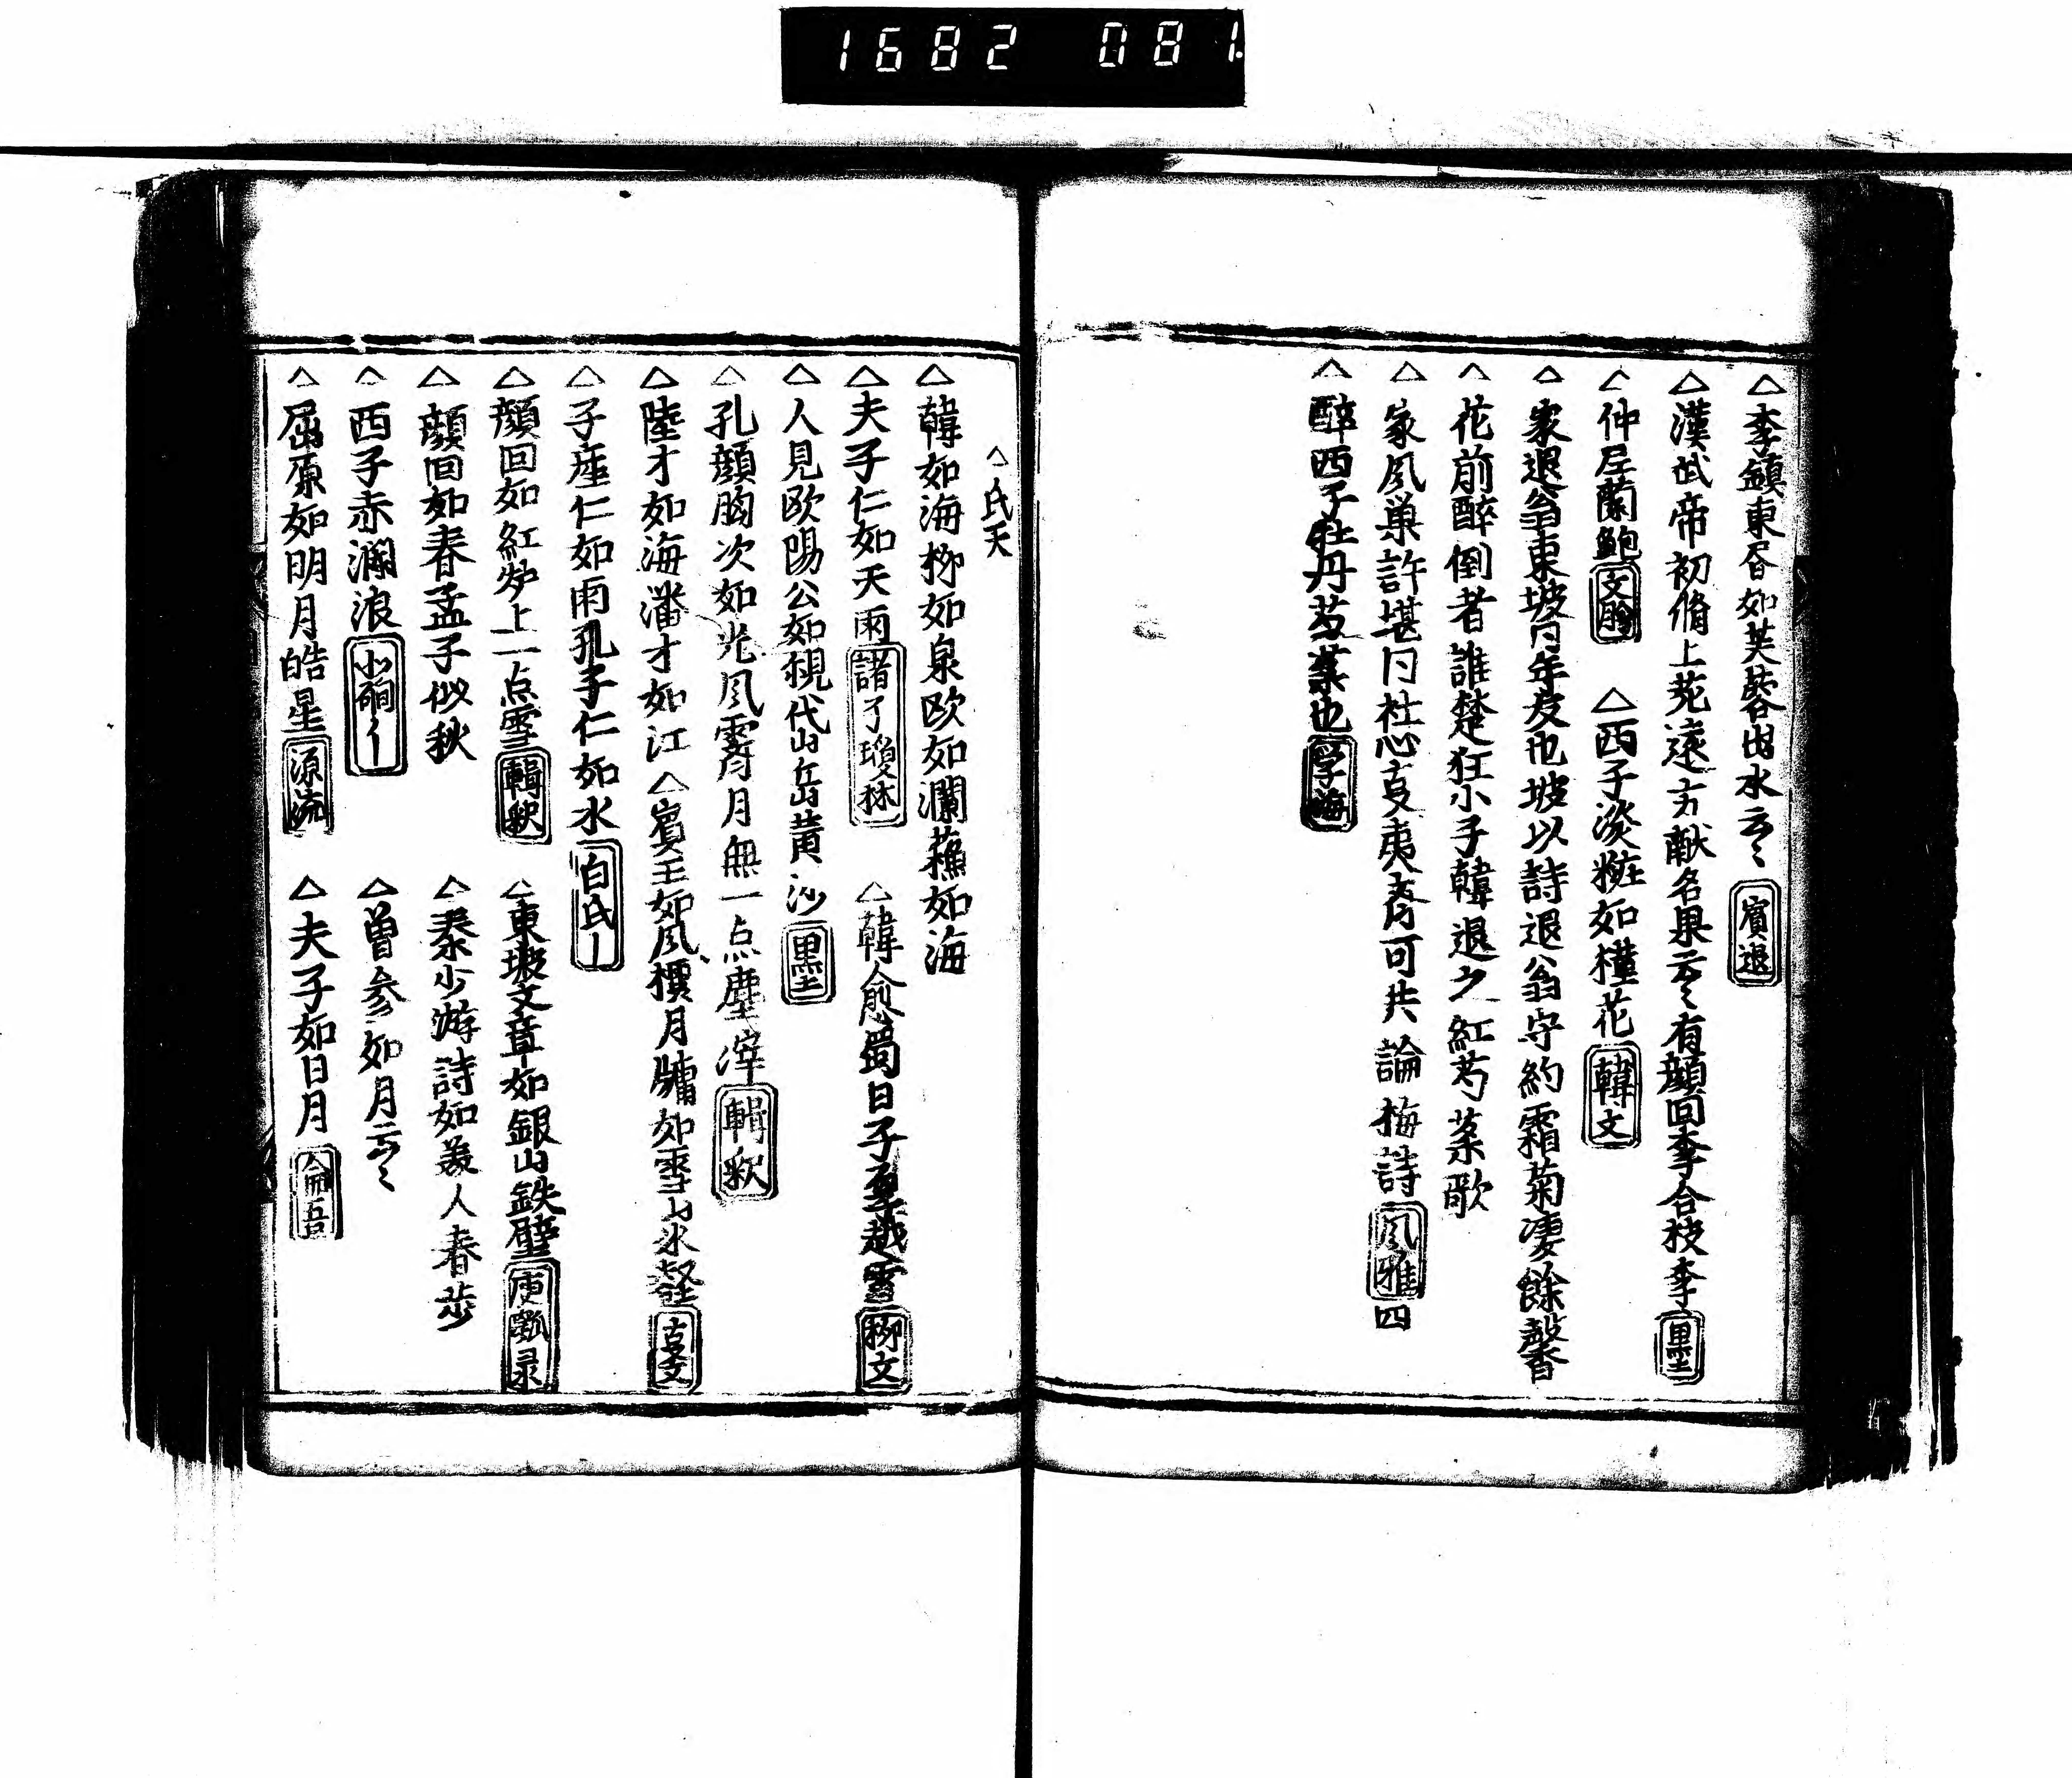 1682 081
△李鎮東𪰪如芙蓉出水云〻 賓退
△漢武帝初脩上苑遠方献名果云〻有顔回李合枝李 墨
△仲尼蘭鮑 文膾 △西子淡粧如槿花 韓文
△家退翁東坡同年友也坡以詩退翁守約霜菊凄餘馨
△花前醉倒者誰楚狂小子韓退之紅芍薬歌
△家風巣許堪同社心夷斉可共論梅詩 風雅四
△醉西子牡丹芍薬也 学海
△氏天
△韓如海柳如泉欧如瀾蘓如海
△夫子仁如天雨 諸了瓊林 △韓愈蜀日子厚越雪 柳文
△人見欧陽公如覩代山岳黄沙 墨
△孔顔胸次如光風霽月無一点塵滓 輯釈
△陸才如海潘才如江△賓王如風檟月牗如雪山氷壑 古文
△子産仁如雨孔子仁如水 白氏
△顔回如紅炉上一点雪 輯釈 △東坡文章如銀山鉄壁 庚瓢录
△顔回如春孟子似秋 △秦少游詩如美人春歩
△西子赤瀾浪 △曽参如月云〻
△屈原如明月皓星 源流 △夫子如日月 侖吾